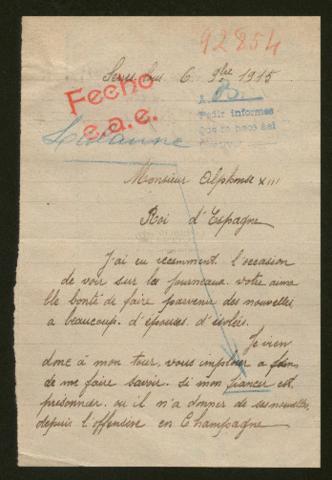 92854
Serres lous 6 9bre 1915
Fecho
c.a.e.
A. B.
Pedir informes
que se haga así
Monsieur Alphonse XIII
Roi d'Espagne
J'ai eu récemment l'occasion
de voir sur les journeaux votre aima
ble bonté de faire parvenir des nouvelles
a beaucoup d'épouses d'isolées.
Je vien
donc à mon tour, vous implorer a fin
de me faire savoir si mon fiancer est
prisonnier ou il n'a donner de ses nouvelles
depuis l'offensive en Champagne